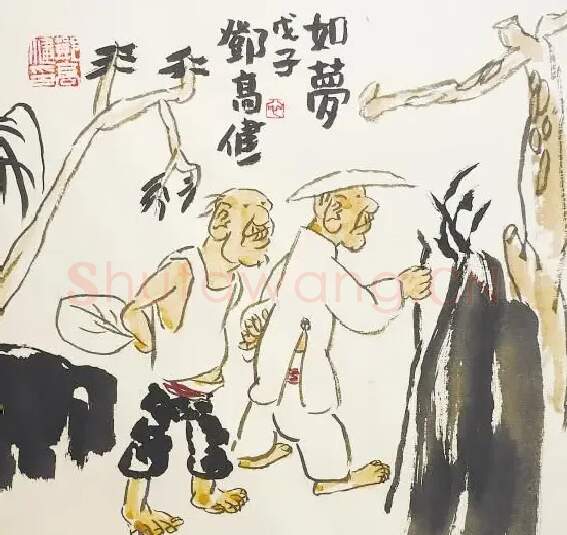 如夢
戊子
鄧高健
Shufawang.CN